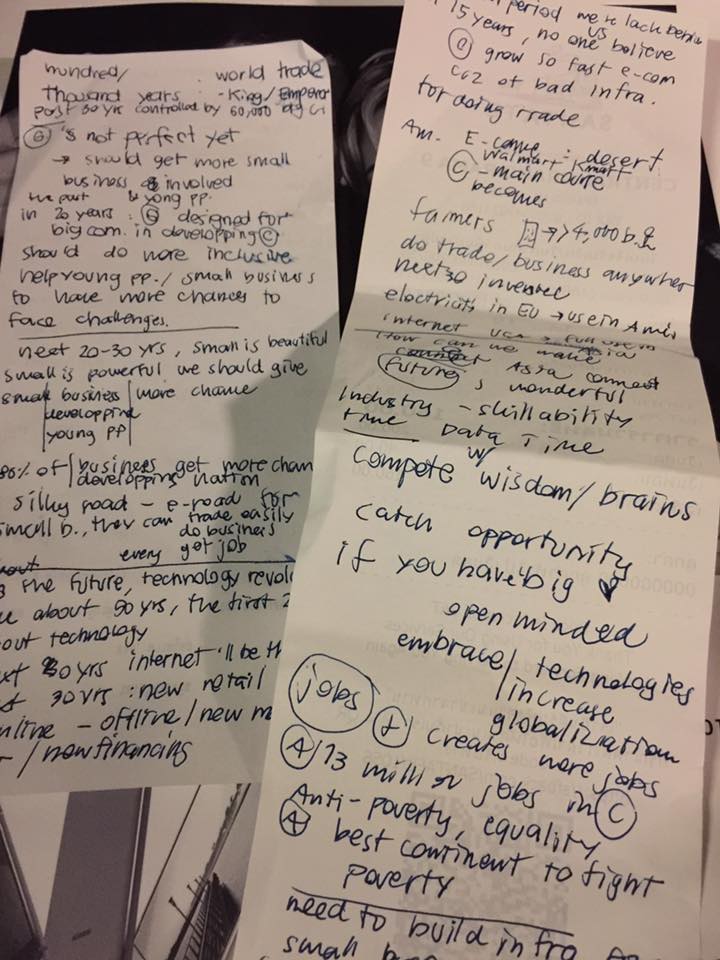 hundred/ world trade
Thousand years : - King/Emperor
past 30 yrs controlled by 60,000 big C
G 's not perfect yet
→ should get more small
business & involved
the past & yong pp.
in 20 years : G designed for
big com. in developping C
should do more inclusive
help young pp./ small business
to have more chances to
face challenges.
next 20-30 yrs, small is beautiful
small is powerful we should give
small business more chance
developping
young pp
80% of business get more chan
developping nation
silky road - e-road for
small b., they can trade easily
do business
every get job
The future, technology revol
about 50 yrs, the first 2
out technology
xt 30 yrs internet 'll be th
30 yrs : new retail
nline - offline/new m
/newfinancing
period we lack behin
15 years, no one believe
C grow so fast e-com
of bad infra.
for doing trade
Am. E-come : desert
Walmart Kmart
C - main course
becomes
famers → >4,000 b.
do trade/business anywher
next 30 invented
electricity in EU → use in Ameri
internet USA
How can we make
Asia connect
Future 's wonderful
Industry - skillability
time Data Time
compete w/ wisdom/brains
catch opportunity
if you have big ♥
open minded
embrace/technologies
/increase
globalization
jobs t creates more jobs
A /13 million jobs in C
Anti-poverty, equality
A best continent to fight
poverty
need to build infra
small